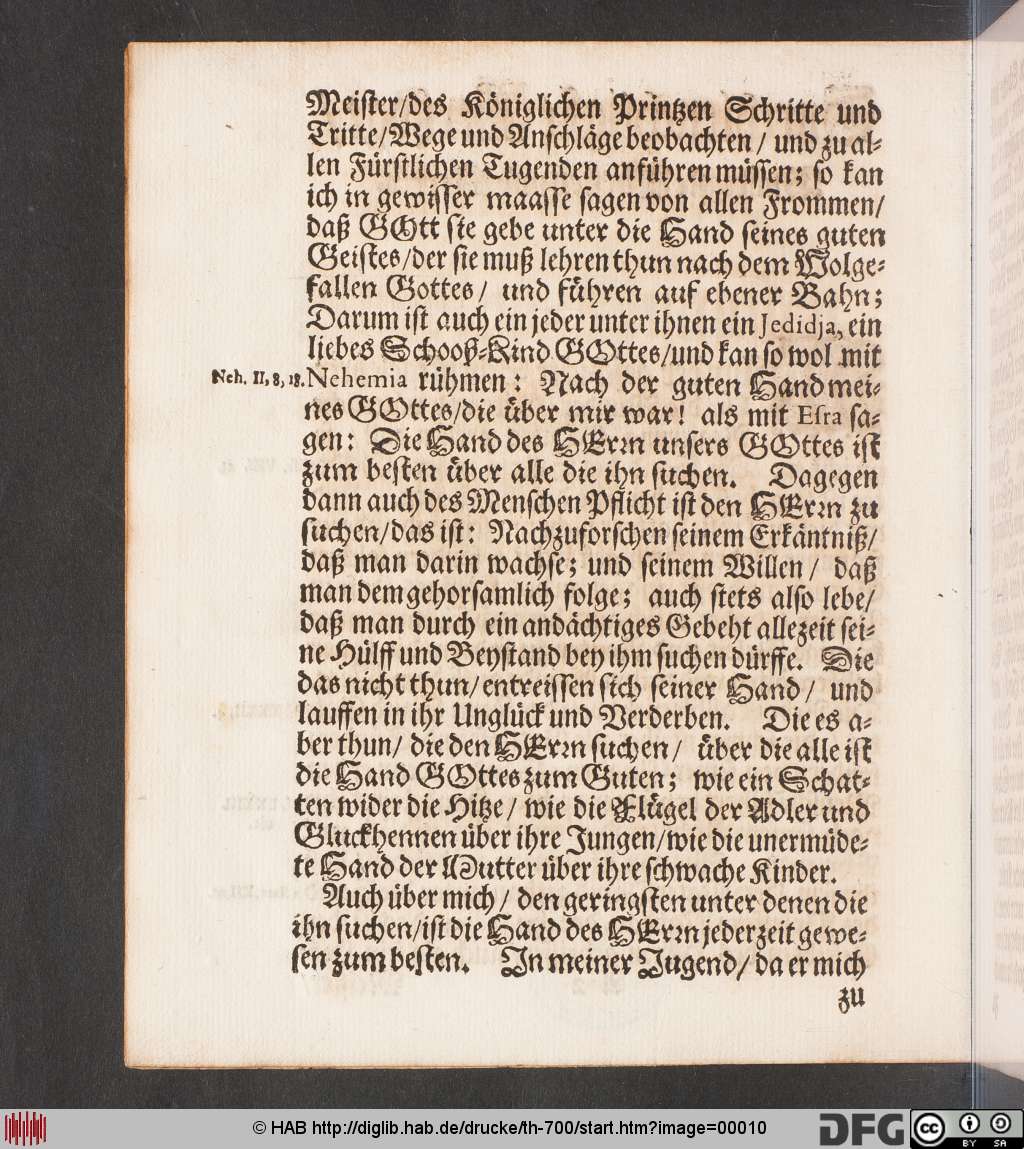 Meister/des Königlichen Printzen Schritte und
Tritte/Wege und Anschläge beobachten / und zu al-
len Fürstlichen Tugenden anführen müssen; so kan
ich in gewisser maasse sagen von allen Frommen/
daß GOtt sie gebe unter die Hand seines guten
Geistes/der sie muß lehren thun nach dem Wolge-
fallen Gottes/ und führen auf ebener Bahn;
Darum ist auch ein jeder unter ihnen ein Jedidja, ein
liebes Schooß-Kind GOttes/und kan so wol mit
Neh. II, 8, 18. Nehemia rühmen: Nach der guten Hand mei-
nes GOttes/die über mir war! als mit Esra sa-
gen: Die Hand des HErrn unsers GOttes ist
zum besten über alle die ihn suchen. Dagegen
dann auch des Menschen Pflicht ist den HErrn zu
suchen/das ist: Nachzuforschen seinem Erkäntniß/
daß man darin wachse; und seinem Willen/ daß
man dem gehorsamlich folge; auch stets also lebe/
daß man durch ein andächtiges Gebeht allezeit sei-
ne Hülff und Beystand bey ihm suchen dürffe. Die
das nicht thun/entreissen sich seiner Hand/ und
lauffen in ihr Unglück und Verderben. Die es a-
ber thun/ die den HErrn suchen/ über die alle ist
die Hand GOttes zum Guten; wie ein Schat-
ten wider die Hitze/ wie die Flügel der Adler und
Gluckhennen über ihre Jungen/wie die unermüde-
te Hand der Mutter über ihre schwache Kinder.
Auch über mich/ den geringsten unter denen die
ihn suchen/ist die Hand des HErrn jederzeit gewe-
sen zum besten. In meiner Jugend/ da er mich
zu
© HAB http://diglib.hab.de/drucke/th-700/start.htm?image=00010
DFG
cc
BY SA